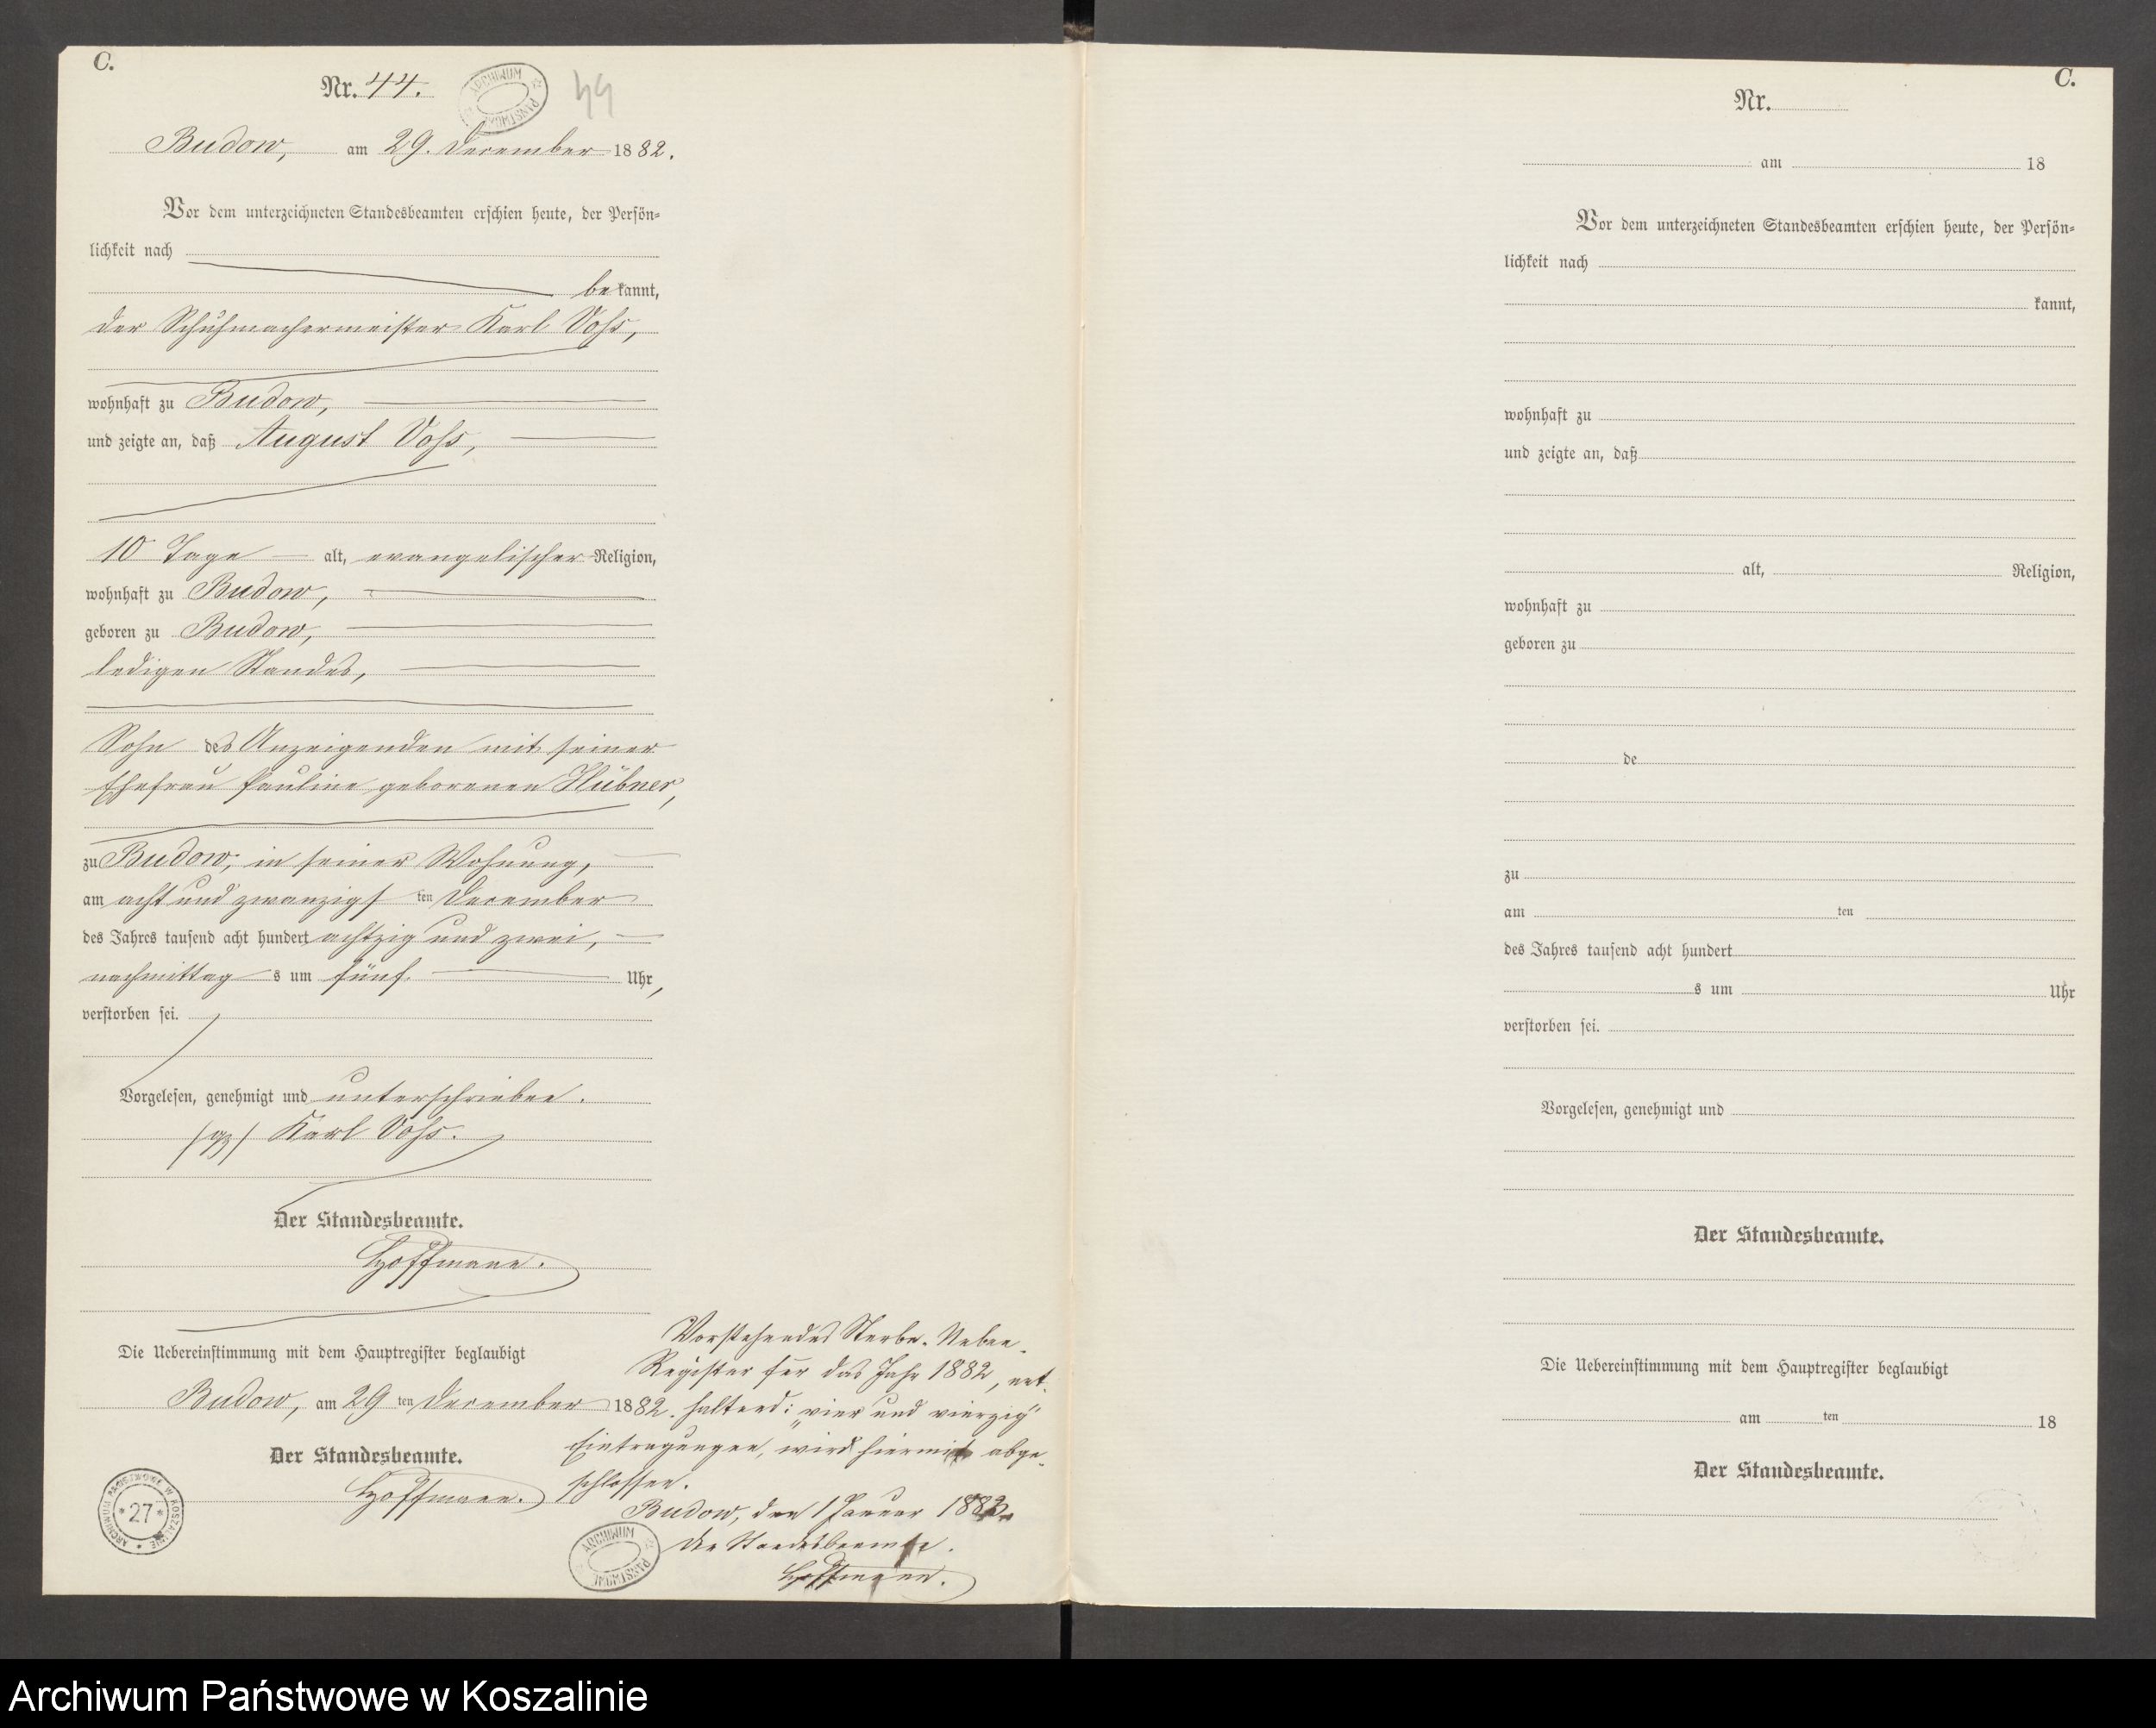 C.
Nr. 44.
ARCHIWUM PAŃSTWOWE
44
Budow, am 29. December 1882.
Vor dem unterzeichneten Standesbeamten erschien heute, der Persön-
lichkeit nach
bekannt,
der Schuhmachermeister Karl Voss,
wohnhaft zu Budow,
und zeigte an, daß August Voss,
10 Tage alt, evangelischer Religion,
wohnhaft zu Budow,
geboren zu Budow,
ledigen Standes,
Sohn des Anzeigenden mit seiner
Ehefrau Pauline geborenen Hübner,
zu Budow, in seiner Wohnung,
am acht und zwanzigsten December
des Jahres tausend acht hundert achtzig und zwei,
nachmittags um fünf Uhr,
verstorben sei.
Vorgelesen, genehmigt und unterschrieben.
/gz/ Karl Voss.
Der Standesbeamte.
Hoffmann.
Die Uebereinstimmung mit dem Hauptregister beglaubigt
Budow, am 29 ten December 1882.
Der Standesbeamte.
Hoffmann.
Vorstehendes Sterbe-Neben-
Register für das Jahr 1882, ent-
haltend: "vier und vierzig"
Eintragungen, wird hiermit abge-
schlossen.
Budow, den 1 Januar 1883.
Der Standesbeamte.
Hoffmann.
ARCHIWUM PAŃSTWOWE W KOSZALINIE
* 27 *
ARCHIWUM PAŃSTWOWE
C.
Nr.
am 18
Vor dem unterzeichneten Standesbeamten erschien heute, der Persön-
lichkeit nach
kannt,
wohnhaft zu
und zeigte an, daß
alt, Religion,
wohnhaft zu
geboren zu
de
zu
am ten
des Jahres tausend acht hundert
s um Uhr
verstorben sei.
Vorgelesen, genehmigt und
Der Standesbeamte.
Die Uebereinstimmung mit dem Hauptregister beglaubigt
am ten 18
Der Standesbeamte.
Archiwum Państwowe w Koszalinie